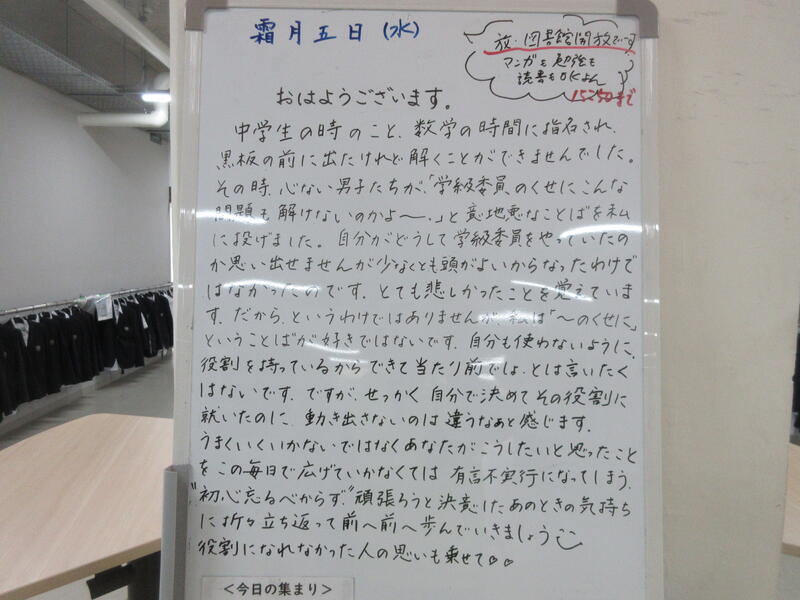 霜月五日(水)
放・図書館開放でーす
マンガも勉強も
読書もOKよん
15:50まで
おはようございます。
中学生の時のこと、数学の時間に指名され、
黒板の前に出たけれど解くことができませんでした。
その時、心ない男子たちが、「学級委員のくせにこんな
問題も解けないのかよ〜。」と意地悪なことばを私
に投げました。自分がどうして学級委員をやっていたの
か思い出せませんが少なくとも頭がよいからなったわけで
はなかったのです。とても悲しかったことを覚えていま
す。だから、というわけではありませんが、私は「〜のくせに」
ということばが好きではないです。自分も使わないように、
役割を持っているからできて当たり前でしょ、とは言いたく
はないです。ですが、せっかく自分で決めてその役割に
就いたのに、動き出さないのは違うなぁと感じます。
うまくいくいかないではなくあなたがこうしたいと思ったこと
をこの毎日で広げていかなくては有言不実行になってしまう。
"初心忘るべからず"頑張ろうと決意したあのときの気持ち
に折々立ち返って前へ前へ歩んでいきましょう
役割になれなかった人の思いも乗せて♡♡
<今日の集まり>